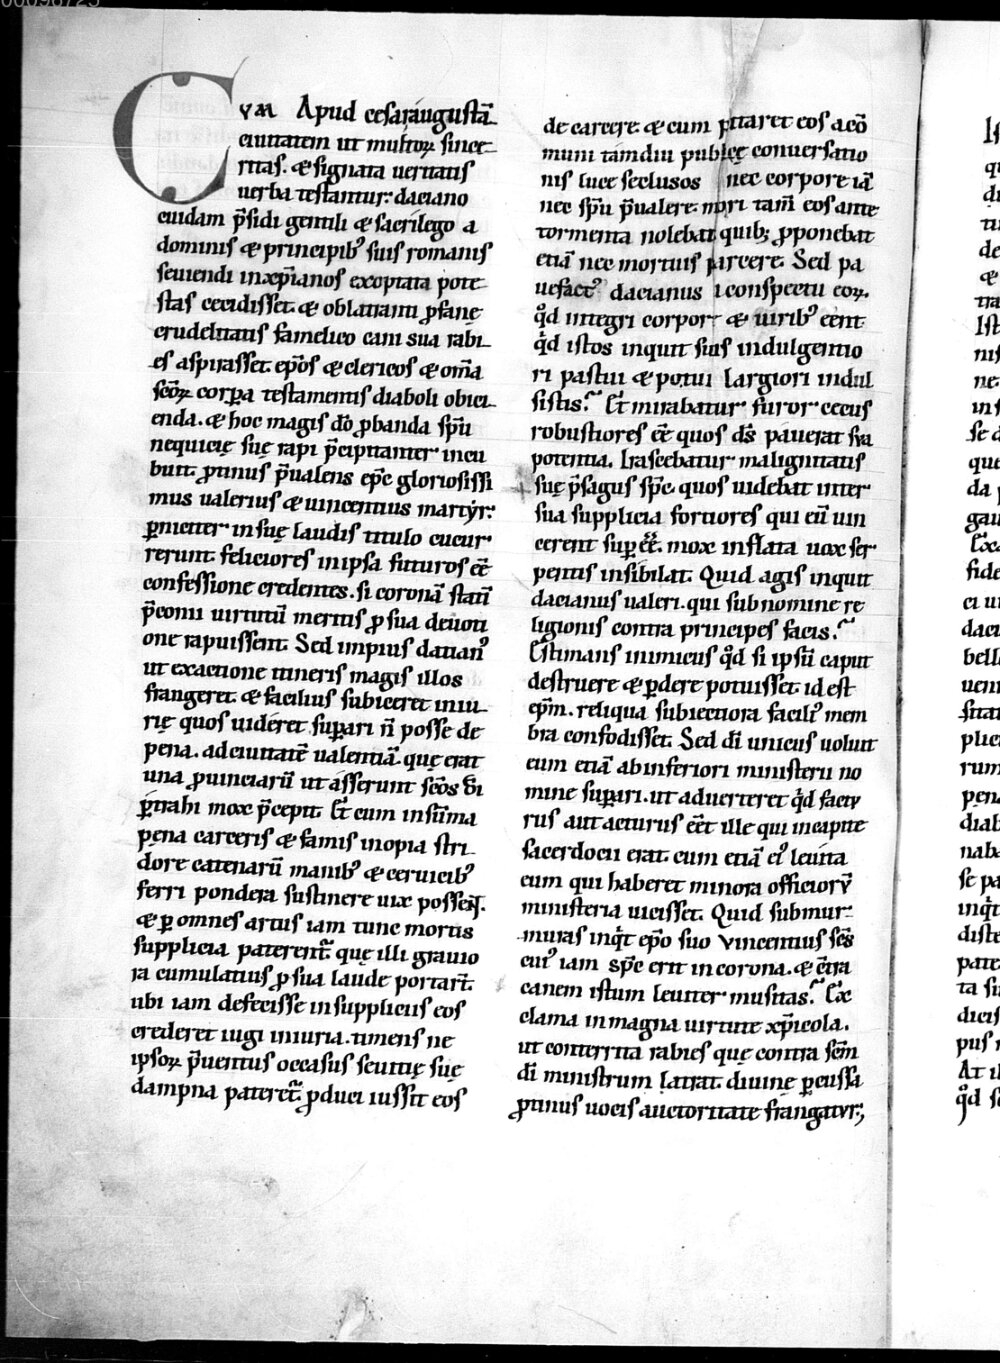 00098725
CVM Apud cesaraugustā
ciuitatem ut multoꝝ since
ritas. & signata ueritatis
uerba testantur: daciano
cuidam p̄sidi gentili & sacrilego a
dominis & principib; suis romanis
seuiendi in xp̄ianos exoptata pote
stas cecidisset. & oblatam ꝓfanę
crudelitatis famelico cani sua rabi
es aspirasset. ep̄os & clericos & om̄a
sc̄oꝝ corꝑa testamentis diaboli obici
enda. & hoc magis dō ꝓbanda sp̄u
nequicię suę rapi p̄cipitanter incu
buit. ꝓtinus p̄ualens ep̄c gloriosissi
mus ualerius & uincentius martyr:
ꝑniciter in suę laudis titulo cucur
rerunt. feliciores in ipsa futuros eē
confessione credentes. si coronā statī
p̄conii uirtutū meritis ꝓ sua deuoti
one rapuissent. Sed impius datianꝰ
ut exactione itineris magis illos
frangeret. & facilius subiceret iniu
rię quos uideret suꝑari n̄ posse de
pena. ad ciuitatē ualentiā. quę erat
una ꝓuinciarū ut asserunt sc̄os di
ꝑtrahi mox p̄cepit. Et cum in sūma
pena carceris & famis inopia stri
dore catenarū manib; & ceruicib;
ferri pondera sustinere uix possent.
& ꝑ omnes artus iam tunc mortis
supplicia paterent̄. que illi grauio
ra cumulatius ꝓ sua laude portart̄.
ubi iam defecisse in suppliciis eos
crederet iugi iniuria. timens ne
ipsoꝝ p̄uentus occasus seuitię suę
dampna pateret̄. ꝓduci iussit eos
de carcere. & cum putaret eos a cō
muni tamdiu publicę conuersatio
nis luce seclusos nec corpore iā
nec sp̄u p̄ualere. mori tam̄ eos ante
tormenta nolebat quib; ꝓponebat
etiā nec mortuis parcere. Sed pa
uefactꝰ dacianus i conspectu eoꝝ.
qd̄ integri corpore & uirib; eēnt.
qd̄ istos inquit suis indulgentio
ri pastui & potui largiori indul
sistis? Et mirabatur furor cecus
robustiores eē quos ds̄ pauerat sua
potentia. Irascebatur malignitatis
suę p̄sagus sp̄c. quos uidebat inter
sua supplicia fortiores qui eū uin
cerent suꝑ eē. mox inflata uox ser
pentis insibilat. Quid agis inquit
dacianus ualeri. qui sub nomine re
ligionis contra principes facis?
Estimans inimicus qd̄ si ipsū caput
destruere & ꝑdere potuisset. id est
ep̄m. reliqua subiectiora faciliꝰ mem
bra confodisset. Sed dī unicus uoluit
eum etiā ab inferiori ministerii no
mine suꝑari. ut aduerteret qd̄ factu
rus aut acturus eēt ille qui in capite
sacerdocii erat. cum etiā eiꝰ leuita
eum qui haberet minora officiorū
ministeria uicisset. Quid submur
muras inqͥt ep̄o suo Vincentius sc̄s
cuiꝰ iam sp̄c erit in corona. & c̄tra
canem istum leuiter musitas? Ex
clama in magna uirtute xp̄icola.
ut conterrita rabies quę contra sc̄m
dī ministrum latrat. diuinę ꝑcussa
ꝓtinus uocis auctoritate frangatur;